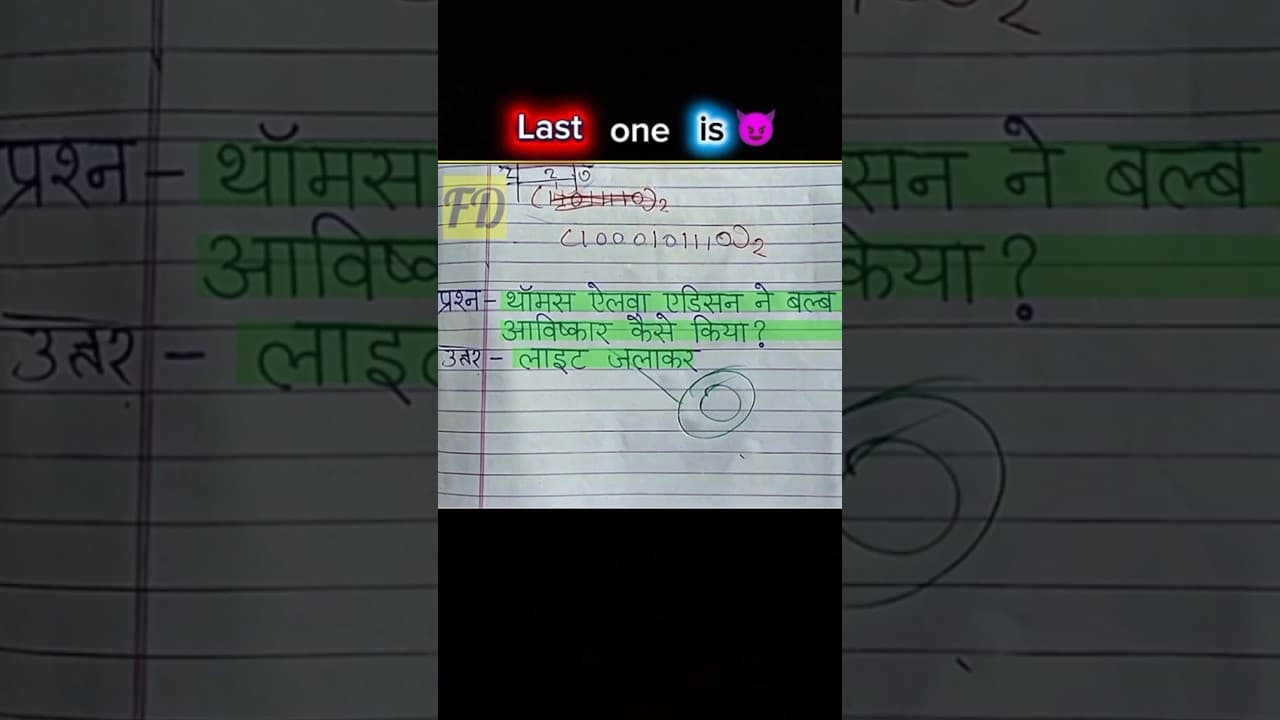 Last one is 😈
2 7
FD
(1000101110)2
प्रश्न - थॉमस ऐलवा एडिसन ने बल्ब
आविष्कार कैसे किया?
उत्तर - लाइट जलाकर